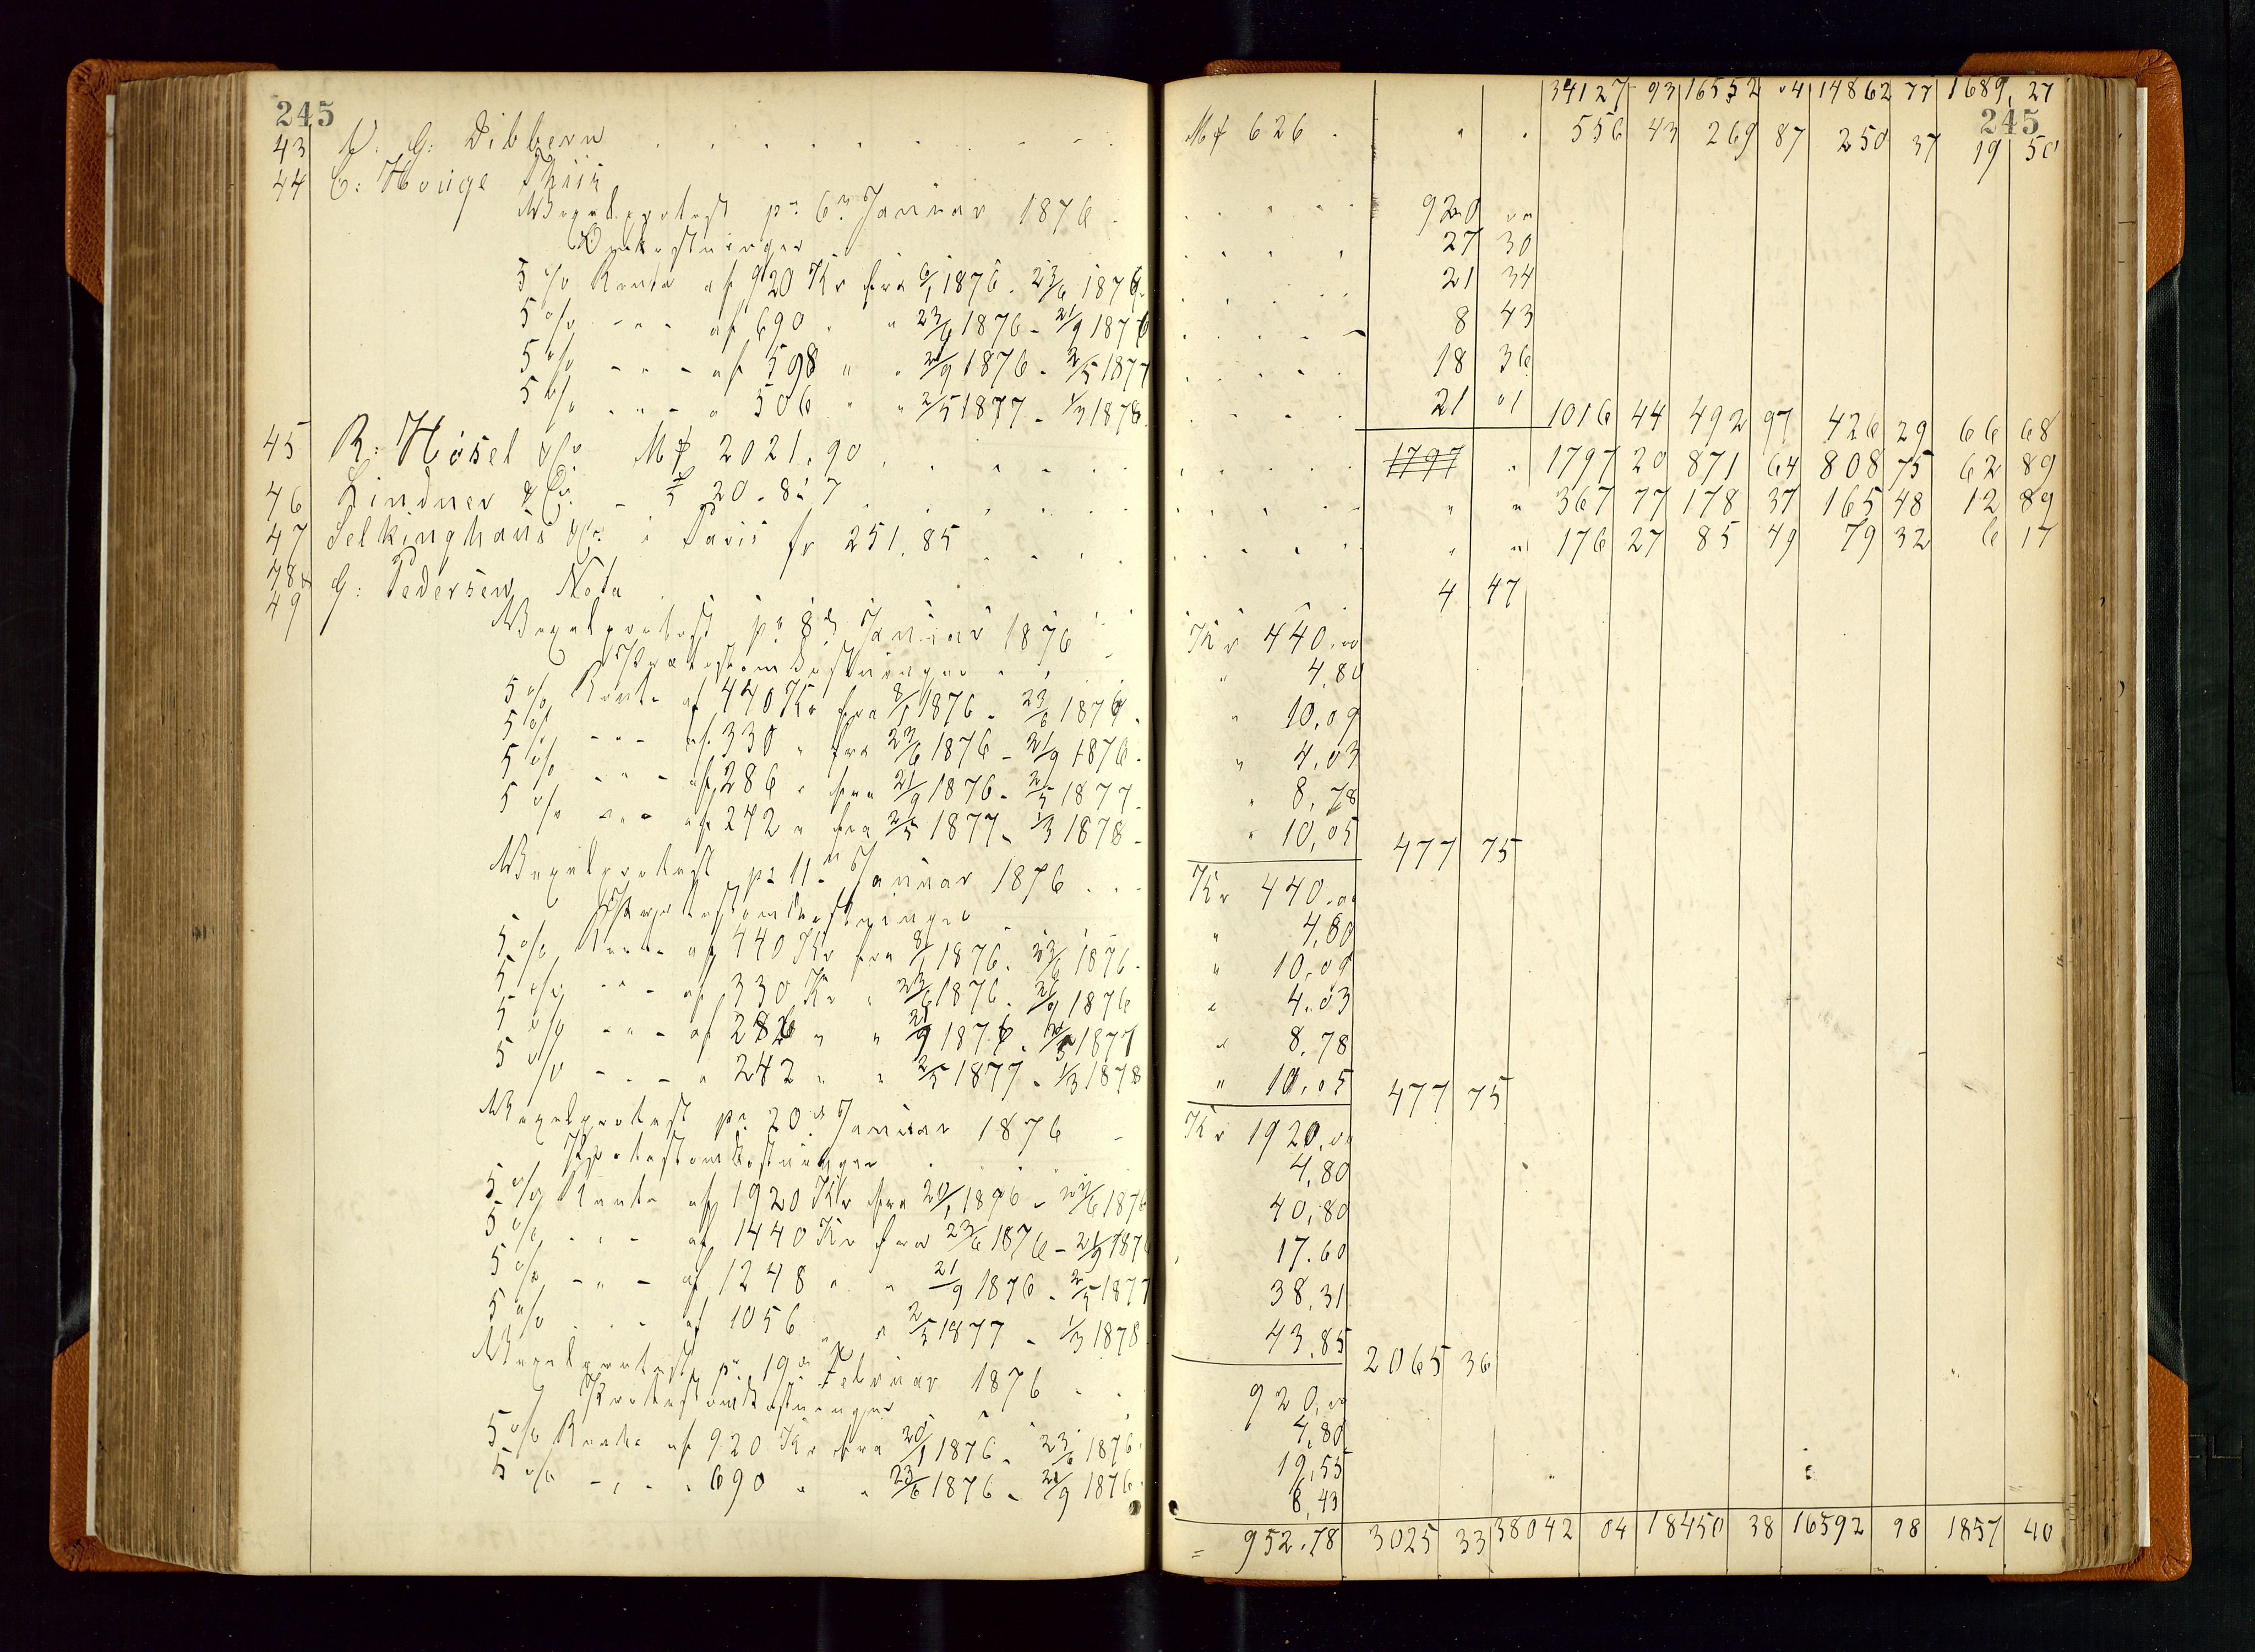 245
43 N. G. Dibbern
44 C. Houge Thiis
Wexelprotest pr 6n Januar 1876
Omkostninger
5 % Rente af 920 Kr fra 6/1 1876 - 23/6 1876
5 % - " - af 690 " " 23/6 1876 - 21/9 1876
5 % - " - af 598 " " 21/9 1876 - 2/5 1877
5 % - " - " 506 " " 2/5 1877 - 1/3 1878
45 R. Hösel & Co M₰ 2021.90
46 Lindner & Co. - £ 20-8-7
47 Selkinghaus & Co i Paris fr 251.85
48 G. Pedersen Nota
49 Wexelprotest pr 8de Januar 1876
Protestomkostninger
5 % Rente af 440 Kr fra 8/1 1876 - 23/6 1876
5 % - " - af 330 " fra 23/6 1876 - 21/9 1876
5 % - " - af 286 " fra 21/9 1876 - 2/5 1877
5 % - " - af 242 " fra 2/5 1877 - 1/3 1878
Wexelprotest pr 11n Januar 1876
Protestomkostninger
5 % Rente af 440 Kr fra 8/1 1876 - 23/6 1876
5 % - " - af 330 Kr " 23/6 1876 - 21/9 1876
5 % - " - af 286 " " 21/9 1876 - 2/5 1877
5 % - " - " 242 " " 2/5 1877 - 1/3 1878
Wexelprotest pr 20de Januar 1876
Protestomkostninger
5 % Rente af 1920 Kr fra 20/1 1876 - 23/6 1876
5 % - " - af 1440 Kr fra 23/6 1876 - 21/9 1876
5 % - " - af 1248 " " 21/9 1876 - 2/5 1877
5 % - " - af 1056 " " 2/5 1877 - 1/3 1878
Wexelprotest pr 19de Februar 1876
Protestomkostninger
5 % Rente af 920 Kr fra 20/1 1876 - 23/6 1876
5 % - " - " 690 " " 23/6 1876 - 21/9 1876
34127 93 16552 04 14862 77 1689 27
245
M₰ 626 " " 556 43 269 87 250 37 19 50
920 00
27 30
21 34
8 43
18 36
21 01 1016 44 492 97 426 29 66 68
1797 " 1797 20 871 64 808 75 62 89
" " 367 77 178 37 165 48 12 89
" " 176 27 85 49 79 32 6 17
4 47
Kr 440.00
" 4.80
" 10.09
" 4.03
" 8.78
" 10.05 477 75
Kr 440.00
" 4.80
" 10.09
" 4.03
" 8.78
" 10.05 477 75
Kr 1920.00
4.80
40.80
17.60
38.31
43.85 2065 36
920.00
4.80
19.55
8.43
= 952.78 3025 33 38042 04 18450 38 16592 98 1857 40